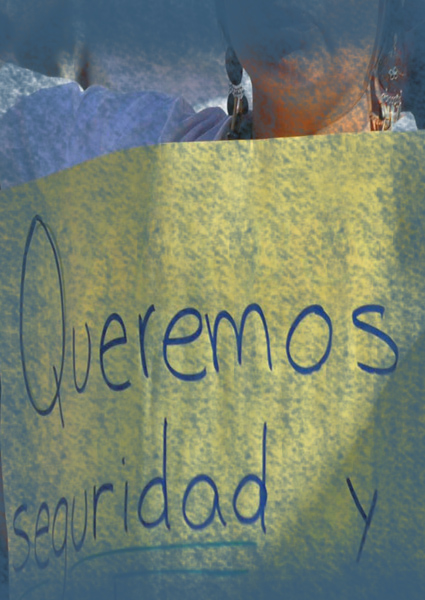 Queremos
seguridad y